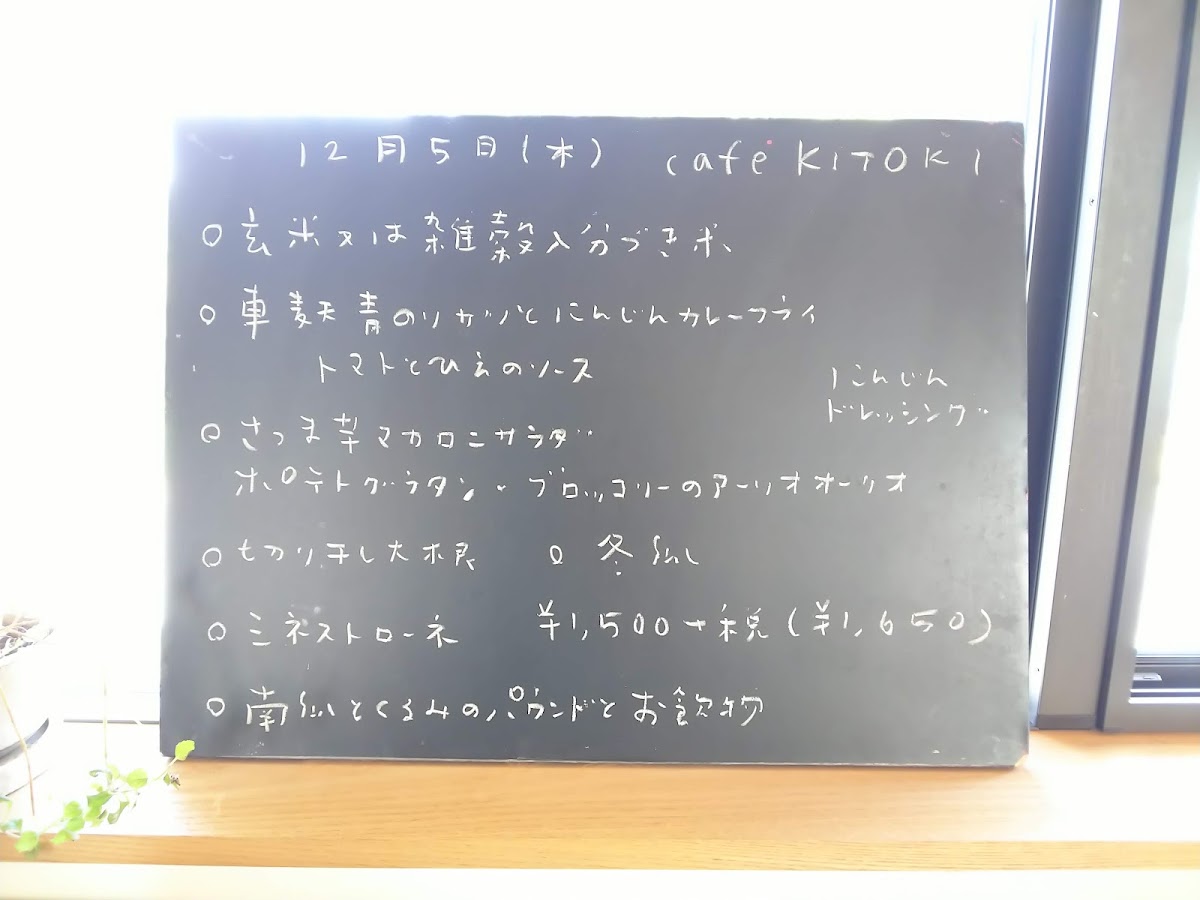 12月5日(木) cafe KITOKI
○玄米又は雑穀入分づき米
○車麩青のり とにんじんカレーフライ
トマトとひえのソース
にんじん
ドレッシング
○さつま芋マカロニサラダ
ポテトグラタン・ブロッコリーのアーリオオーリオ
○切り干し大根 ○冬瓜
○ミネストローネ ¥1,500+税(¥1,650)
○南瓜とくるみのパウンドとお飲物